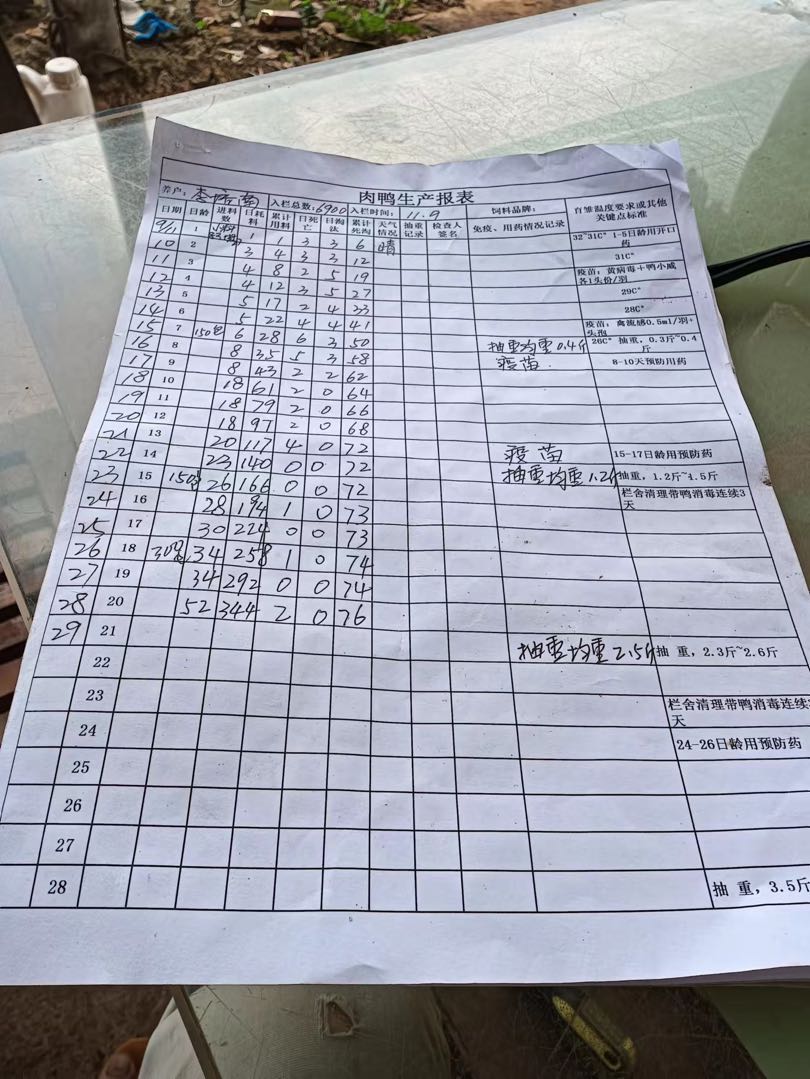 肉鸭生产报表
养户: 李培南 入栏总数: 6900 入栏时间: 11.9 饲料品牌: 育雏温度要求或其他关键点标准
日期 日龄 进料数 日耗料 累计用料 日死亡 日淘汰 累计死淘 天气情况 抽重记录 检查人签名 免疫、用药情况记录
9/11 1 1 1 3 3 6 晴 32~31C° 1-5日龄用开口药
10 2 3 4 3 3 12 31C°
11 3 4 8 2 5 19 疫苗: 黄病毒+鸭小威各1头份/羽
12 4 4 12 3 5 27 29C°
13 5 5 17 2 4 33 28C°
14 6 5 22 4 4 41 疫苗: 禽流感0.5ml/羽+头孢
15 7 150包 6 28 6 3 50 抽重均重0.4斤 26C° 抽重, 0.3斤~0.4斤
16 8 8 35 5 3 58 疫苗 8-10天预防用药
17 9 8 43 2 2 62
18 10 18 61 2 0 64
19 11 18 79 2 0 66
20 12 18 97 2 0 68
21 13 20 117 4 0 72 疫苗 15-17日龄用预防药
22 14 23 140 0 0 72 抽重均重1.2斤 抽重, 1.2斤~1.5斤
23 15 150包 26 166 0 0 72 栏舍清理带鸭消毒连续3天
24 16 28 194 1 0 73
25 17 30 224 0 0 73
26 18 30包 34 258 1 0 74
27 19 34 292 0 0 74
28 20 52 344 2 0 76
29 21 抽重均重2.5斤 抽 重, 2.3斤~2.6斤
22
23 栏舍清理带鸭消毒连续3天
24 24-26日龄用预防药
25
26
27
28 抽 重, 3.5斤